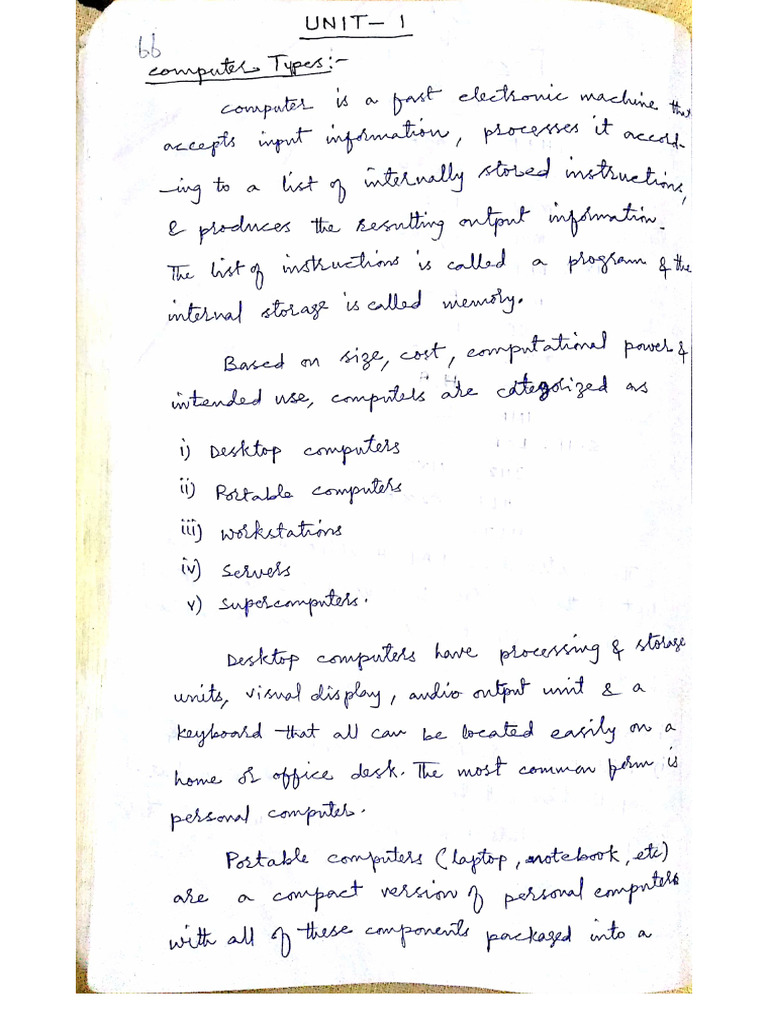 UNIT - 1
66
Computer Types:-
Computer is a fast electronic machine that
accepts input information, processes it accord-
-ing to a list of internally stored instructions,
& produces the resulting output information.
The list of instructions is called a program & the
internal storage is called memory.
Based on size, cost, computational power &
intended use, computers are categorized as
i) Desktop computers
ii) Portable computers
iii) workstations
iv) servers
v) supercomputers.
Desktop computers have processing & storage
units, visual display, audio output unit & a
keyboard that all can be located easily on a
home or office desk. The most common form is
personal computer.
Portable computers (laptop, notebook, etc)
are a compact version of personal computers
with all of these components packaged into a